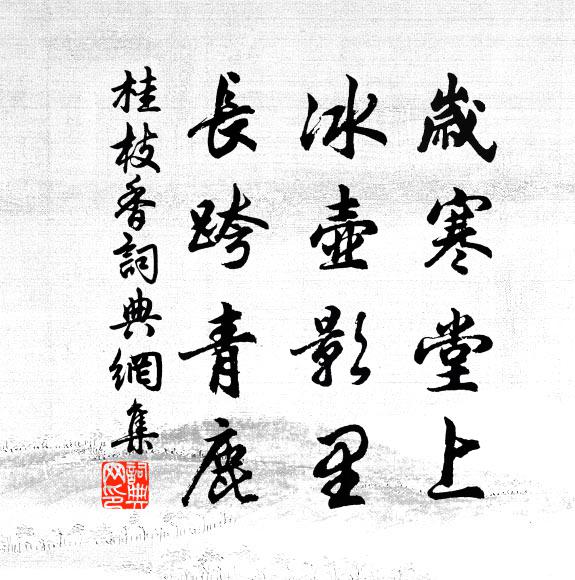 歲寒堂上
冰壺影里
長跨青鹿
桂枝香詞典網集
詞典網印